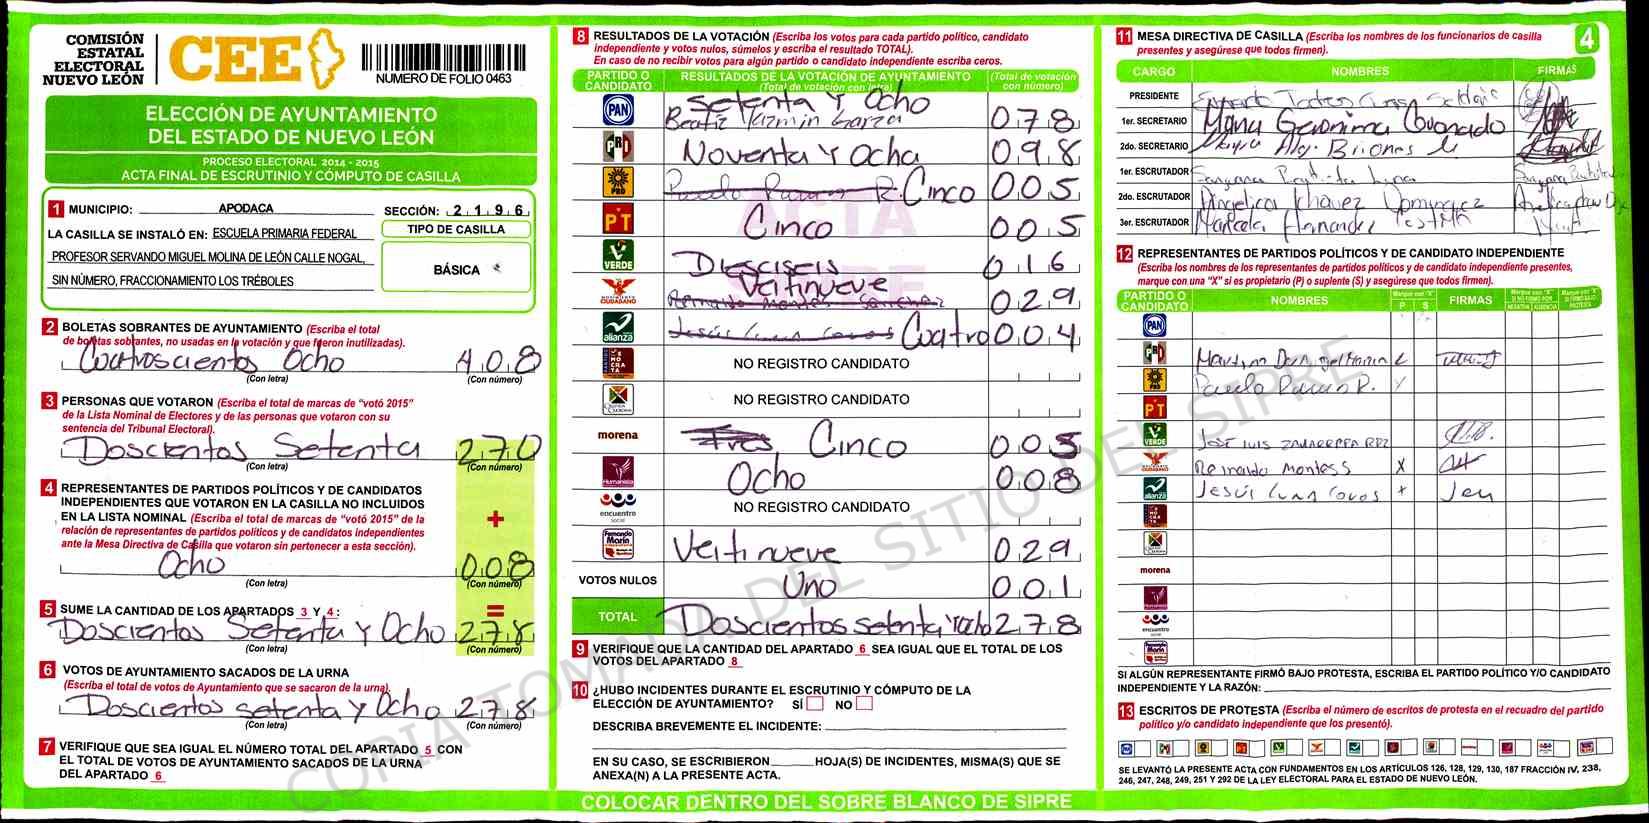 COMISIÓN
ESTATAL
ELECTORAL
NUEVO LEÓN
CEE
NUMERO DE FOLIO 0463
ELECCIÓN DE AYUNTAMIENTO
DEL ESTADO DE NUEVO LEÓN
PROCESO ELECTORAL 2014 - 2015
ACTA FINAL DE ESCRUTINIO Y CÓMPUTO DE CASILLA
1 MUNICIPIO: APODACA SECCIÓN: 2196
LA CASILLA SE INSTALÓ EN: ESCUELA PRIMARIA FEDERAL
PROFESOR SERVANDO MIGUEL MOLINA DE LEÓN CALLE NOGAL,
SIN NÚMERO, FRACCIONAMIENTO LOS TRÉBOLES
TIPO DE CASILLA
BÁSICA
2 BOLETAS SOBRANTES DE AYUNTAMIENTO (Escriba el total
de boletas sobrantes, no usadas en la votación y que fueron inutilizadas).
Cuatroscientos Ocho 408
(Con letra) (Con número)
3 PERSONAS QUE VOTARON (Escriba el total de marcas de "votó 2015"
de la Lista Nominal de Electores y de las personas que votaron con su
sentencia del Tribunal Electoral).
Doscientos Setenta 270
(Con letra) (Con número)
4 REPRESENTANTES DE PARTIDOS POLÍTICOS Y DE CANDIDATOS
INDEPENDIENTES QUE VOTARON EN LA CASILLA NO INCLUIDOS
EN LA LISTA NOMINAL (Escriba el total de marcas de "votó 2015" de la
relación de representantes de partidos políticos y de candidatos independientes
ante la Mesa Directiva de Casilla que votaron sin pertenecer a esta sección).
+
Ocho 008
(Con letra) (Con número)
=
5 SUME LA CANTIDAD DE LOS APARTADOS 3 Y 4:
Doscientos Setenta Y Ocho 278
(Con letra) (Con número)
6 VOTOS DE AYUNTAMIENTO SACADOS DE LA URNA
(Escriba el total de votos de Ayuntamiento que se sacaron de la urna).
Doscientos setenta y Ocho 278
(Con letra) (Con número)
7 VERIFIQUE QUE SEA IGUAL EL NÚMERO TOTAL DEL APARTADO 5 CON
EL TOTAL DE VOTOS DE AYUNTAMIENTO SACADOS DE LA URNA
DEL APARTADO 6
8 RESULTADOS DE LA VOTACIÓN (Escriba los votos para cada partido político, candidato
independiente y votos nulos, súmelos y escriba el resultado TOTAL).
En caso de no recibir votos para algún partido o candidato independiente escriba ceros.
PARTIDO O
CANDIDATO
RESULTADOS DE LA VOTACIÓN DE AYUNTAMIENTO
(Total de votación con letra)
(Total de votación
con número)
PAN Setenta Y Ocho 078
Beatriz Yazmin Garza
PRI Noventa Y Ocha 098
PRD Cinco 005
PT Cinco 005
VERDE Diesciseis 016
MOVIMIENTO CIUDADANO Veitinueve 029
Reinaldo Montes Sanchez
alianza Jesús Luna Covos Cuatro 004
NO REGISTRO CANDIDATO
NO REGISTRO CANDIDATO
morena Tres Cinco 005
Humanista Ocho 008
encuentro social NO REGISTRO CANDIDATO
Fernando Marín Veitinueve 029
VOTOS NULOS Uno 001
TOTAL Doscientos setenta Y ocho 278
9 VERIFIQUE QUE LA CANTIDAD DEL APARTADO 6 SEA IGUAL QUE EL TOTAL DE LOS
VOTOS DEL APARTADO 8
10 ¿HUBO INCIDENTES DURANTE EL ESCRUTINIO Y CÓMPUTO DE LA
ELECCIÓN DE AYUNTAMIENTO? SÍ NO
DESCRIBA BREVEMENTE EL INCIDENTE:
EN SU CASO, SE ESCRIBIERON HOJA(S) DE INCIDENTES, MISMA(S) QUE SE
ANEXA(N) A LA PRESENTE ACTA.
COLOCAR DENTRO DEL SOBRE BLANCO DE SIPRE
ACTA
SIPRE
COPIA TOMADA DEL SITIO DEL SIPRE
11 MESA DIRECTIVA DE CASILLA (Escriba los nombres de los funcionarios de casilla
presentes y asegúrese que todos firmen).
4
CARGO NOMBRES FIRMAS
PRESIDENTE
1er. SECRETARIO Geronima Coronado
2do. SECRETARIO Briones
1er. ESCRUTADOR
2do. ESCRUTADOR Angelica Chavez Dominguez
3er. ESCRUTADOR Marcela Hernandez
12 REPRESENTANTES DE PARTIDOS POLÍTICOS Y DE CANDIDATO INDEPENDIENTE
(Escriba los nombres de los representantes de partidos políticos y de candidato independiente presentes,
marque con una "X" si es propietario (P) o suplente (S) y asegúrese que todos firmen).
PARTIDO O
CANDIDATO
NOMBRES
Marque con "X"
P S
FIRMAS
PAN
PRI
PRD
PT
VERDE JOSÉ LUIS
CIUDADANO Reinaldo Montes S X
alianza Jesús Luna Covos x
morena
SI ALGÚN REPRESENTANTE FIRMÓ BAJO PROTESTA, ESCRIBA EL PARTIDO POLÍTICO Y/O CANDIDATO
INDEPENDIENTE Y LA RAZÓN:
13 ESCRITOS DE PROTESTA (Escriba el número de escritos de protesta en el recuadro del partido
político y/o candidato independiente que los presentó).
SE LEVANTÓ LA PRESENTE ACTA CON FUNDAMENTOS EN LOS ARTÍCULOS 126, 128, 129, 130, 187 FRACCIÓN IV, 238,
246, 247, 248, 249, 251 Y 292 DE LA LEY ELECTORAL PARA EL ESTADO DE NUEVO LEÓN.